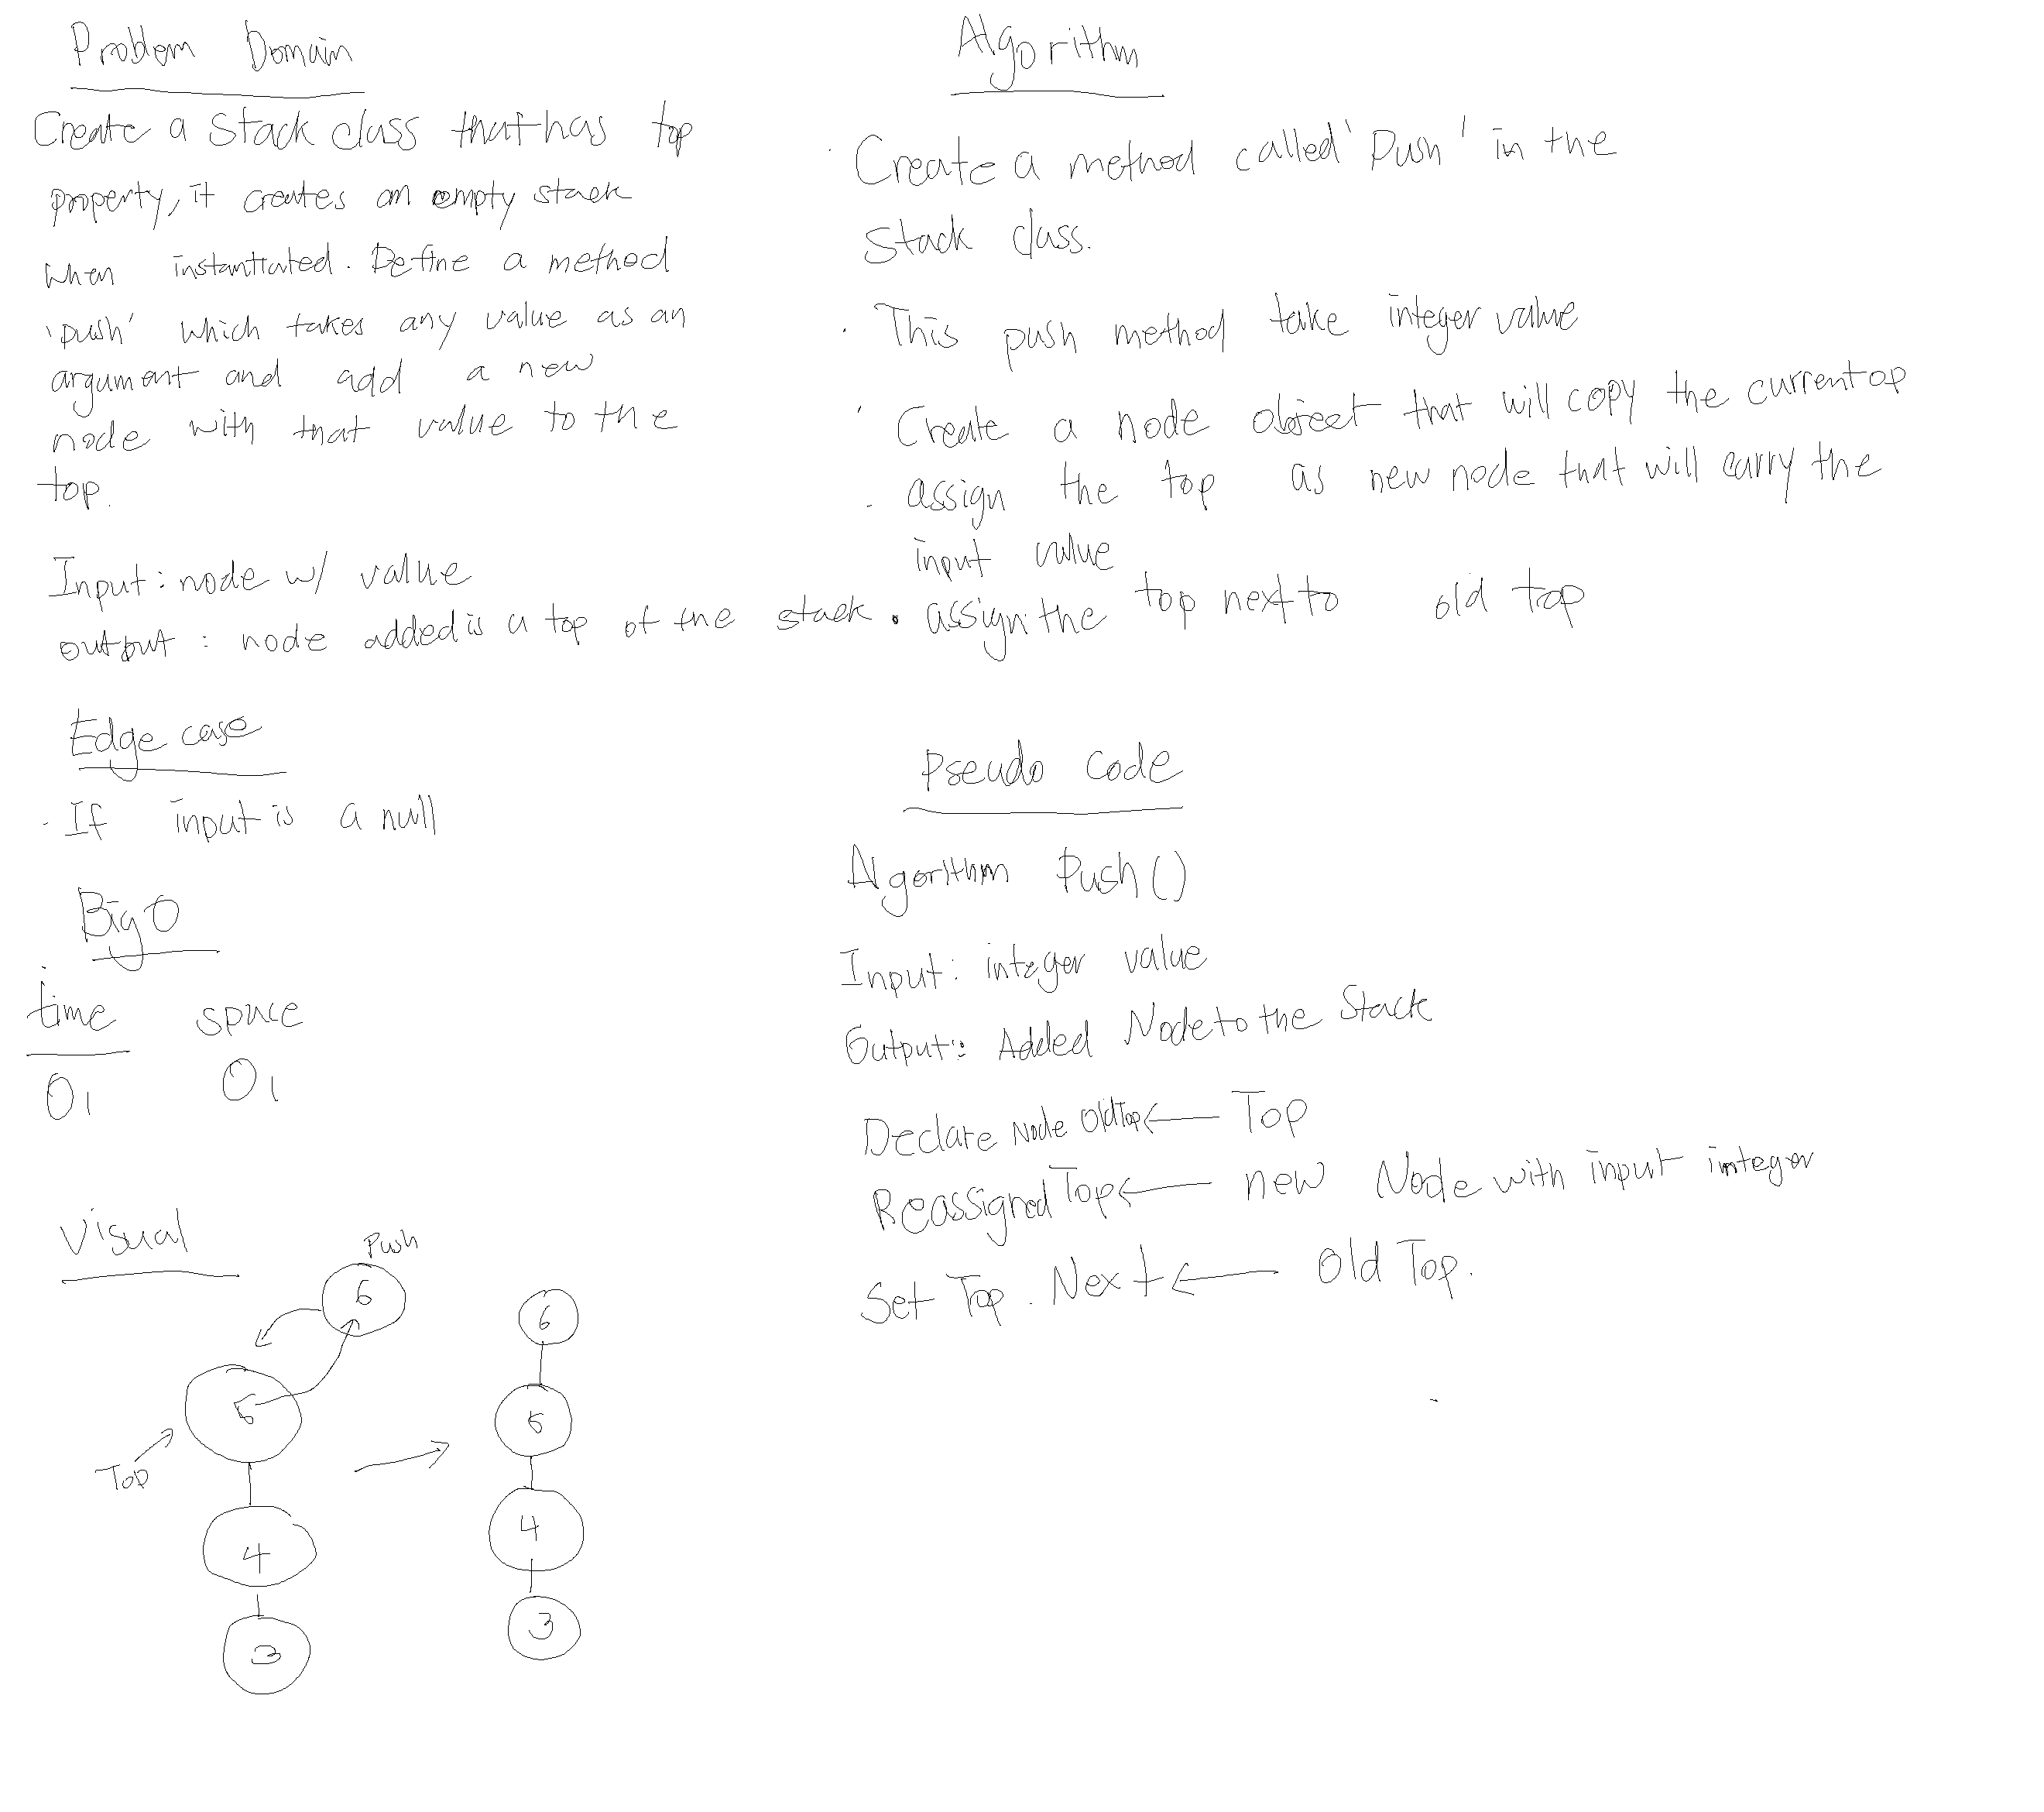 Problem Domain
Create a Stack class that has top
property, it creates an empty stack
when instantiated. Define a method
'push' which takes any value as an
argument and add a new
node with that value to the
top.
Input: node w/ value
output: node added is a top of the stack
Edge case
. If input is a null
Big O
time space
O1 O1
Visual
Push
6
5
Top
4
3
6
5
4
3
Algorithm
. Create a method called 'Push' in the
Stack class.
. This push method take integer value
. Create a node object that will copy the current op
. assign the top as new node that will carry the
input value
. assign the top next to old top
Pseudo Code
Algorithm Push()
Input: integer value
Output: Added Node to the Stack
Declare Node OldTop ← Top
Reassigned Top ← new Node with input integer
Set Top. Next ← Old Top.